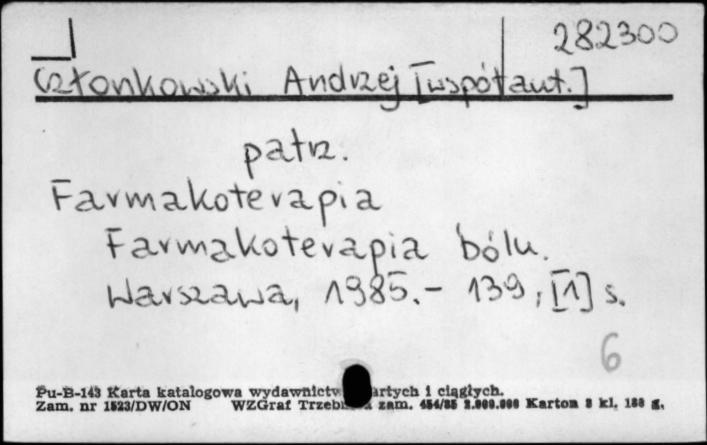 282300
Członkowski Andrzej [współaut.]
patrz.
Farmakoterapia
Farmakoterapia bólu.
Warszawa, 1985.- 139, [1] s.
6
Pu-B-143 Karta katalogowa wydawnictw artych i ciągłych.
Zam. nr 1523/DW/ON WZGraf Trzeb zam. 454/85 2.000.000 Karton 3 kl. g.